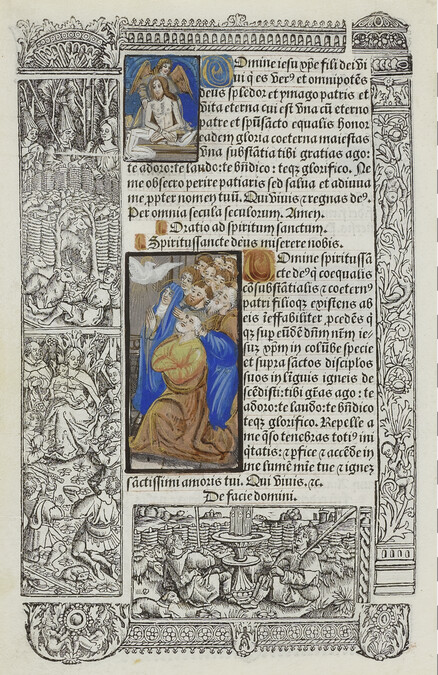 Omine iesu xp̄e fili dei vi
ui q̄ es ver⁹ et omnipotēs
deus splēdor et ymago patris et
vita eterna cui est vna cū eterno
patre et spūsācto equalis honor
eadem gloria coeterna maiestas
vna substātia tibi gratias ago:
te adoro: te laudo: te bn̄dico: teqꝫ glorifico. Ne
me obsecro perire patiaris sed salua et adiuua
me ꝓpter nomen tuū. Qui viuis ⁊ regnas de⁹.
Per omnia secula seculorum. Amen.
Oratio ad spiritum sanctum.
Spiritussancte deus miserere nobis.
Omine spiritussā
cte de⁹ q̄ coequalis
cōsubstātialis ⁊ coetern⁹
patri filioqꝫ existens ab
eis ineffabiliter ꝓcedēs q̄
sup eūdē dn̄m nr̄m ie/
suꝫ xp̄m in colūbe specie
et supra sāctos disciplos
suos in linguis igneis de
cēdisti: tibi gr̄as ago: te
adoro: te laudo: te bn̄dico
teqꝫ glorifico. Repelle a
me q̄so tenebras toti⁹ ini
q̄tatis: ⁊ ꝑfice ⁊ accēde in
me lumē mie tue ⁊ ignez
sāctissimi amoris tui. Qui viuis. ⁊c.
De facie domini.